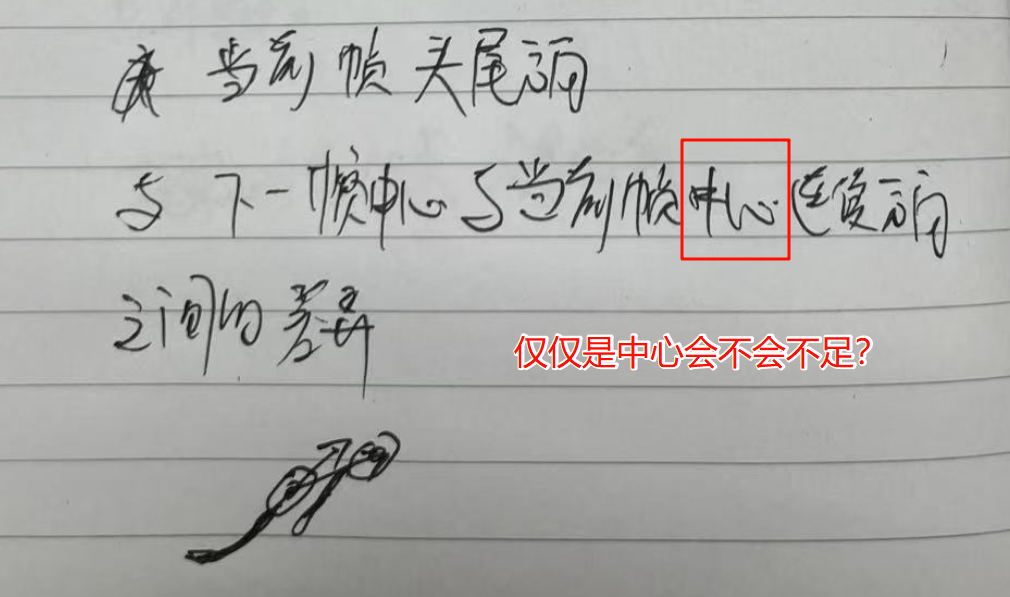 当前帧头尾方向
与下一帧中心与当前帧中心连线方向
之间的差异
仅仅是中心会不会不足?